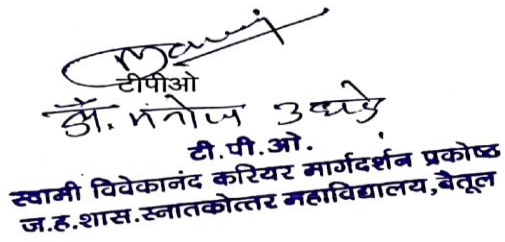 टीपीओ
डॉ. मनोज उघडे
टी.पी.ओ.
स्वामी विवेकानंद करियर मार्गदर्शन प्रकोष्ठ
ज.ह.शास.स्नातकोत्तर महाविद्यालय,बैतूल